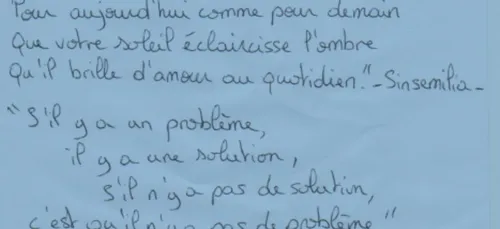 Pour aujourd'hui comme pour demain
Que votre soleil éclaircisse l'ombre
Qu'il brille d'amour au quotidien." - Sinsemilia -
"S'il y a un problème,
il y a une solution,
s'il n'y a pas de solution,
c'est qu'il n'y a pas de problème"